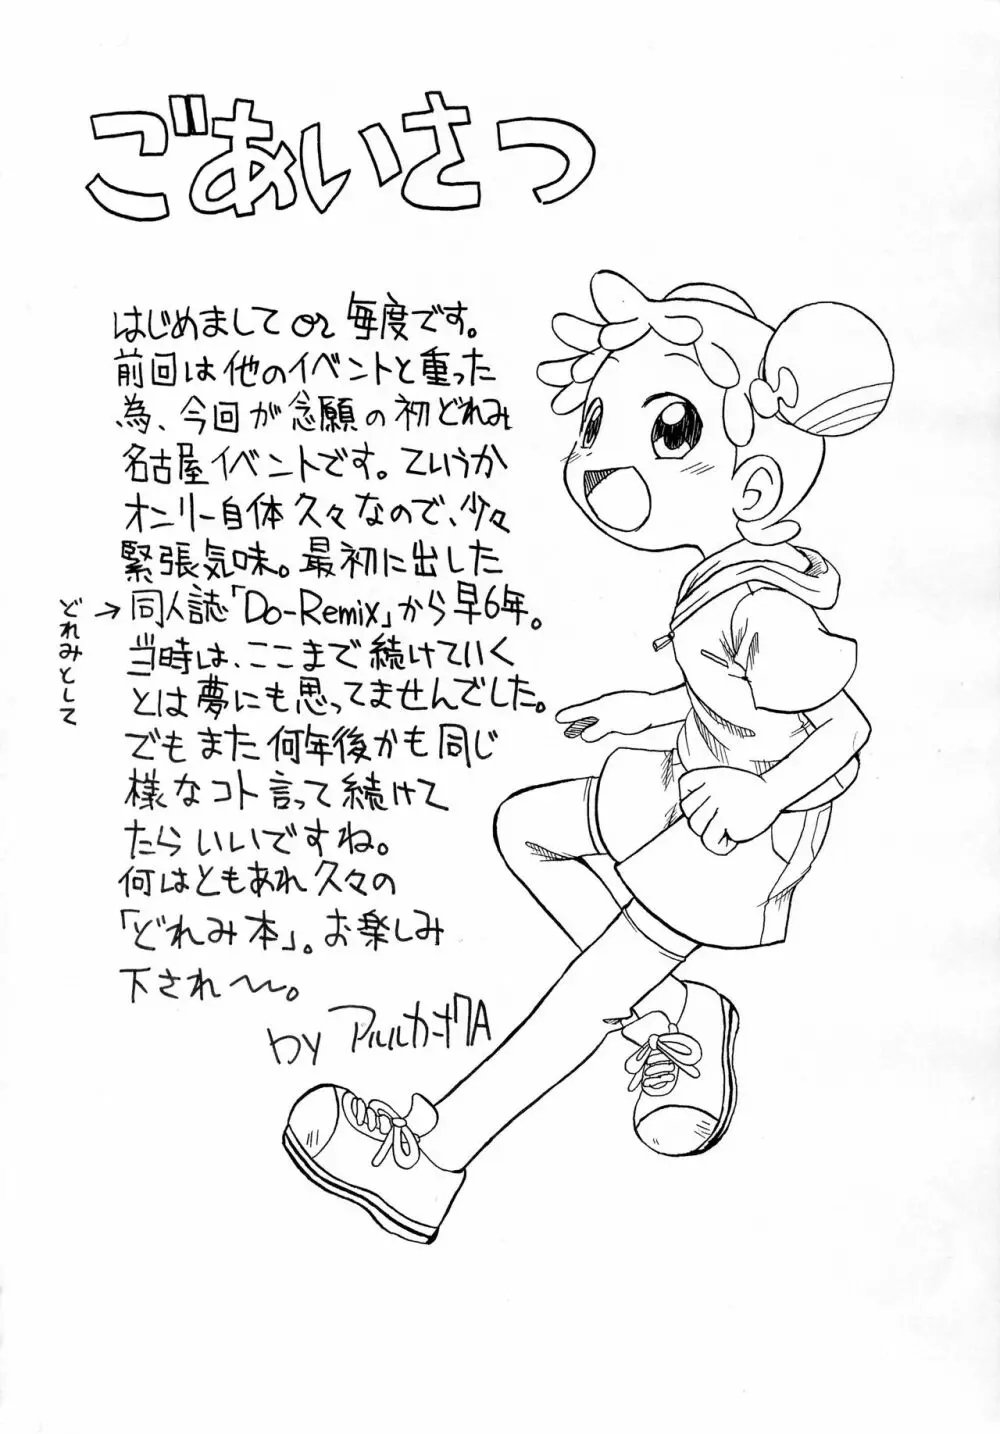 ごあいさつ
はじめまして or 毎度です。
前回は他のイベントと重った
為、今回が念願の初どれみ
名古屋イベントです。ていうか
オンリー自体久々なので、少々
緊張気味。最初に出した
どれみとして
→同人誌「Do-Remix」から早6年。
当時は、ここまで続けていく
とは夢にも思ってませんでした。
でもまた何年後かも同じ
様なコト言って続けて
たらいいですね。
何はともあれ久々の
「どれみ本」。お楽しみ
下され〜。
by アルルカーナ7A